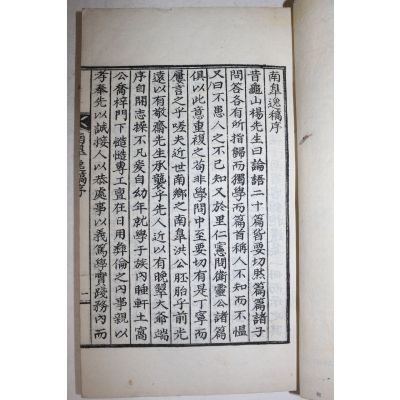 南皐逸稿序
昔龜山楊先生曰論語二十篇皆要切然篇篇諸子
問答各有所指歸而獨學而篇首稱人不知而不慍
又曰不患人之不己知又於里仁憲問衛靈公諸篇
俱以此意重複之苟非學問中至要切有是丁寧而
屢言之乎嗟夫近世南鄉之南皐洪公胚胎乎前光
遠有以敬齋先生承襲乎先人近以有晩翠大爺端
序自闢志操不凡爰自幼年就學子族內睡軒土窩
公喬梓門下慥慥專工亶在日用彜倫之內事親以
孝奉先以誠接人以恭處事以義篤學實踐務內而
南皐逸稿序
一